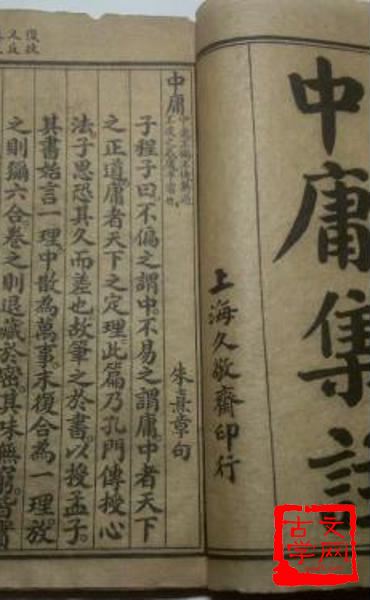 中庸集註
上海久敬齋印行
中庸
中者不偏不倚無過
不及之名庸平常也
朱熹章句
子程子曰。不偏之謂中。不易之謂庸。中者天下
之正道。庸者天下之定理。此篇乃孔門傳授心
法。子思恐其久而差也。故筆之於書。以授孟子。
其書始言一理。中散為萬事。末復合為一理。放
之則彌六合。卷之則退藏於密。其味無窮。皆實
復扶
又反
古文学网